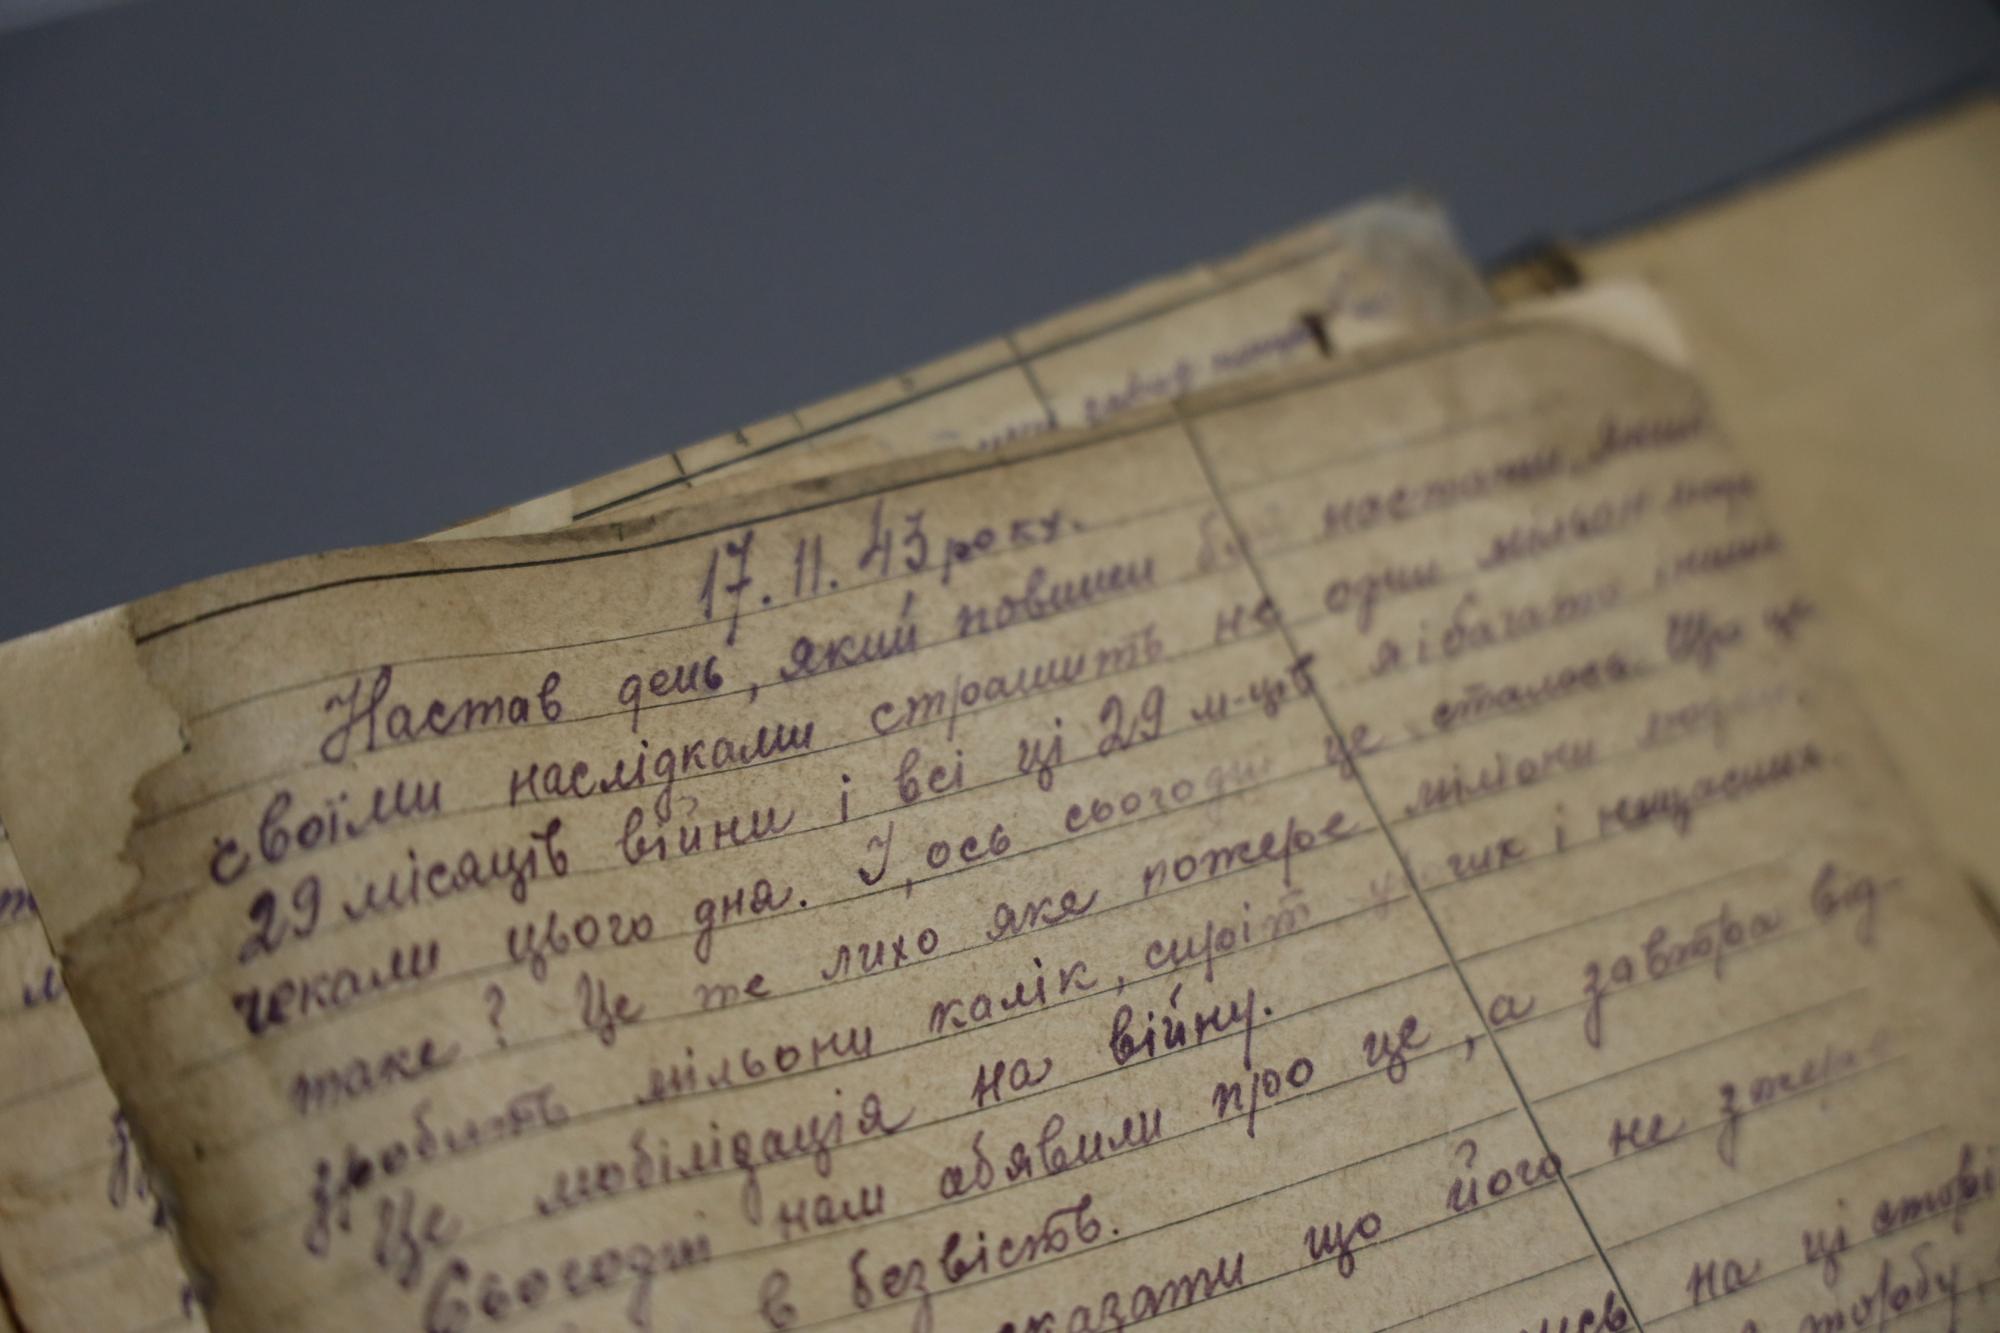 17. 11. 43 року.
Настав день, який повинен був настати, який
своїми наслідками страшить не один мільон людей
29 місяців війни і всі ці 29 м-ців я і багато інших
чекали цього дня. І, ось сьогодні це сталось. Що це
таке? Це те лихо яке пожере міліони людей,
зробить мільони калік, сиріт у і нещасних.
Це мобілізація на війну.
Сьогодні нам обявили про це, а завтра від-
в безвість.
сказати що його не
на ці сторі
торбу,